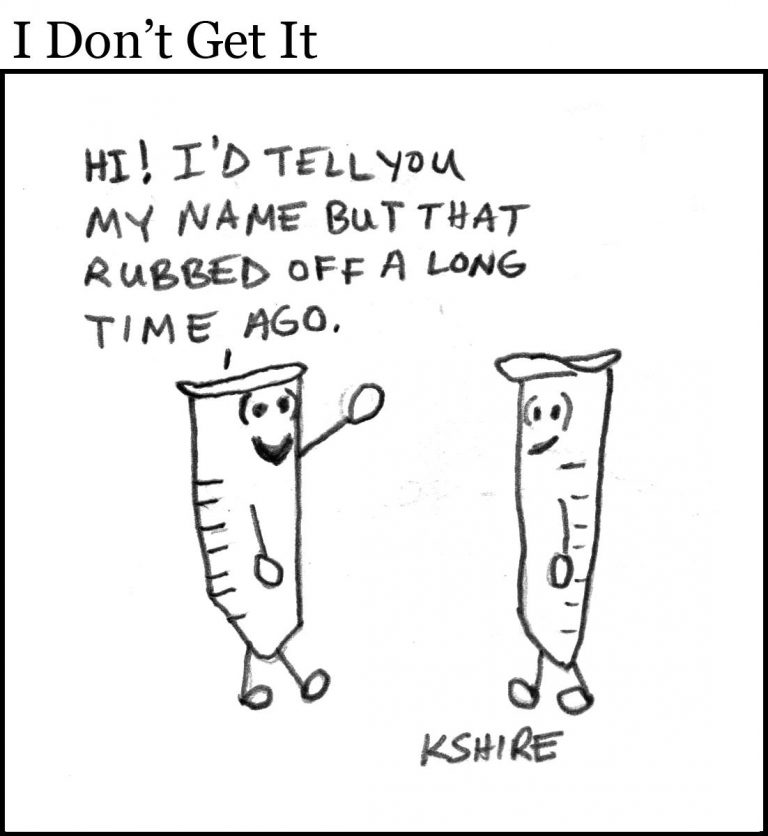 I Don't Get It
HI! I'D TELL YOU
MY NAME BUT THAT
RUBBED OFF A LONG
TIME AGO.
KSHIRE